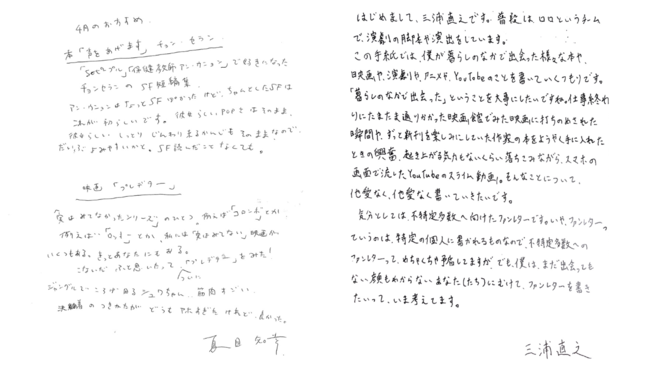 4月のおすすめ
本「声をあげます」チョン・セラン
「フィフティ・ピープル」「保健教師アン・ウニョン」で好きになった
チョンセランのSF短編集。
アン・ウニョンはSFぽかったけど、ちゃんとしたSFは
これが初らしいです。彼女らしいPOPさはそのまま、
SF読んだことなくても。
映画「プレデター」
実はみてなかったシリーズのひとつ。例えば「コロンボ」とか
例えば…「ロッキー」とか、私には「実はみてない」映画が
いくつもある。きっとあなたにもある。
こないだ ふと思いたって「プレデター」をみた！
ついに
ジャングルをころげ回るシュワちゃん、筋肉すごい。
夏目知幸
はじめまして、三浦直之です。普段は、ロロというチーム
で、演劇の脚本や演出をしています。
この手紙では、僕が暮らしのなかで出会った様々な本や、
映画や、演劇や、アニメや、YouTubeのことを書いていくつもりです。
「暮らしのなかで出会った」ということを大事にしたいですね。仕事終わ
りにたまたま通りかかった映画館でみた映画に打ちのめされた
瞬間や、ずっと新刊を楽しみにしていた作家の本をようやく手に入れた
ときの興奮、起き上がる気力もないくらい落ちこみながら、スマホの
画面で流したYouTubeのスライム動画。そんなことについて、
他愛なく、他愛なく書いていきたいです。
気分としては、不特定多数へ向けたファンレターです。いや、ファンレター
っていうのは、特定の個人に書かれるものなので、不特定多数への
ファンレターって、めちゃくちゃ矛盾してますが、でも、僕は、まだ出会っても
ない、顔もわからないあなた(たち)にむけて、ファンレターを書き
たいって、いま考えてます。
三浦直之